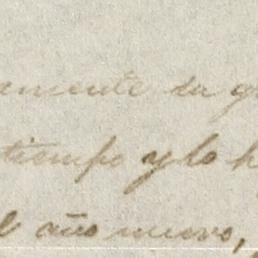 amente su g
tiempo y lo h
l año nuevo,